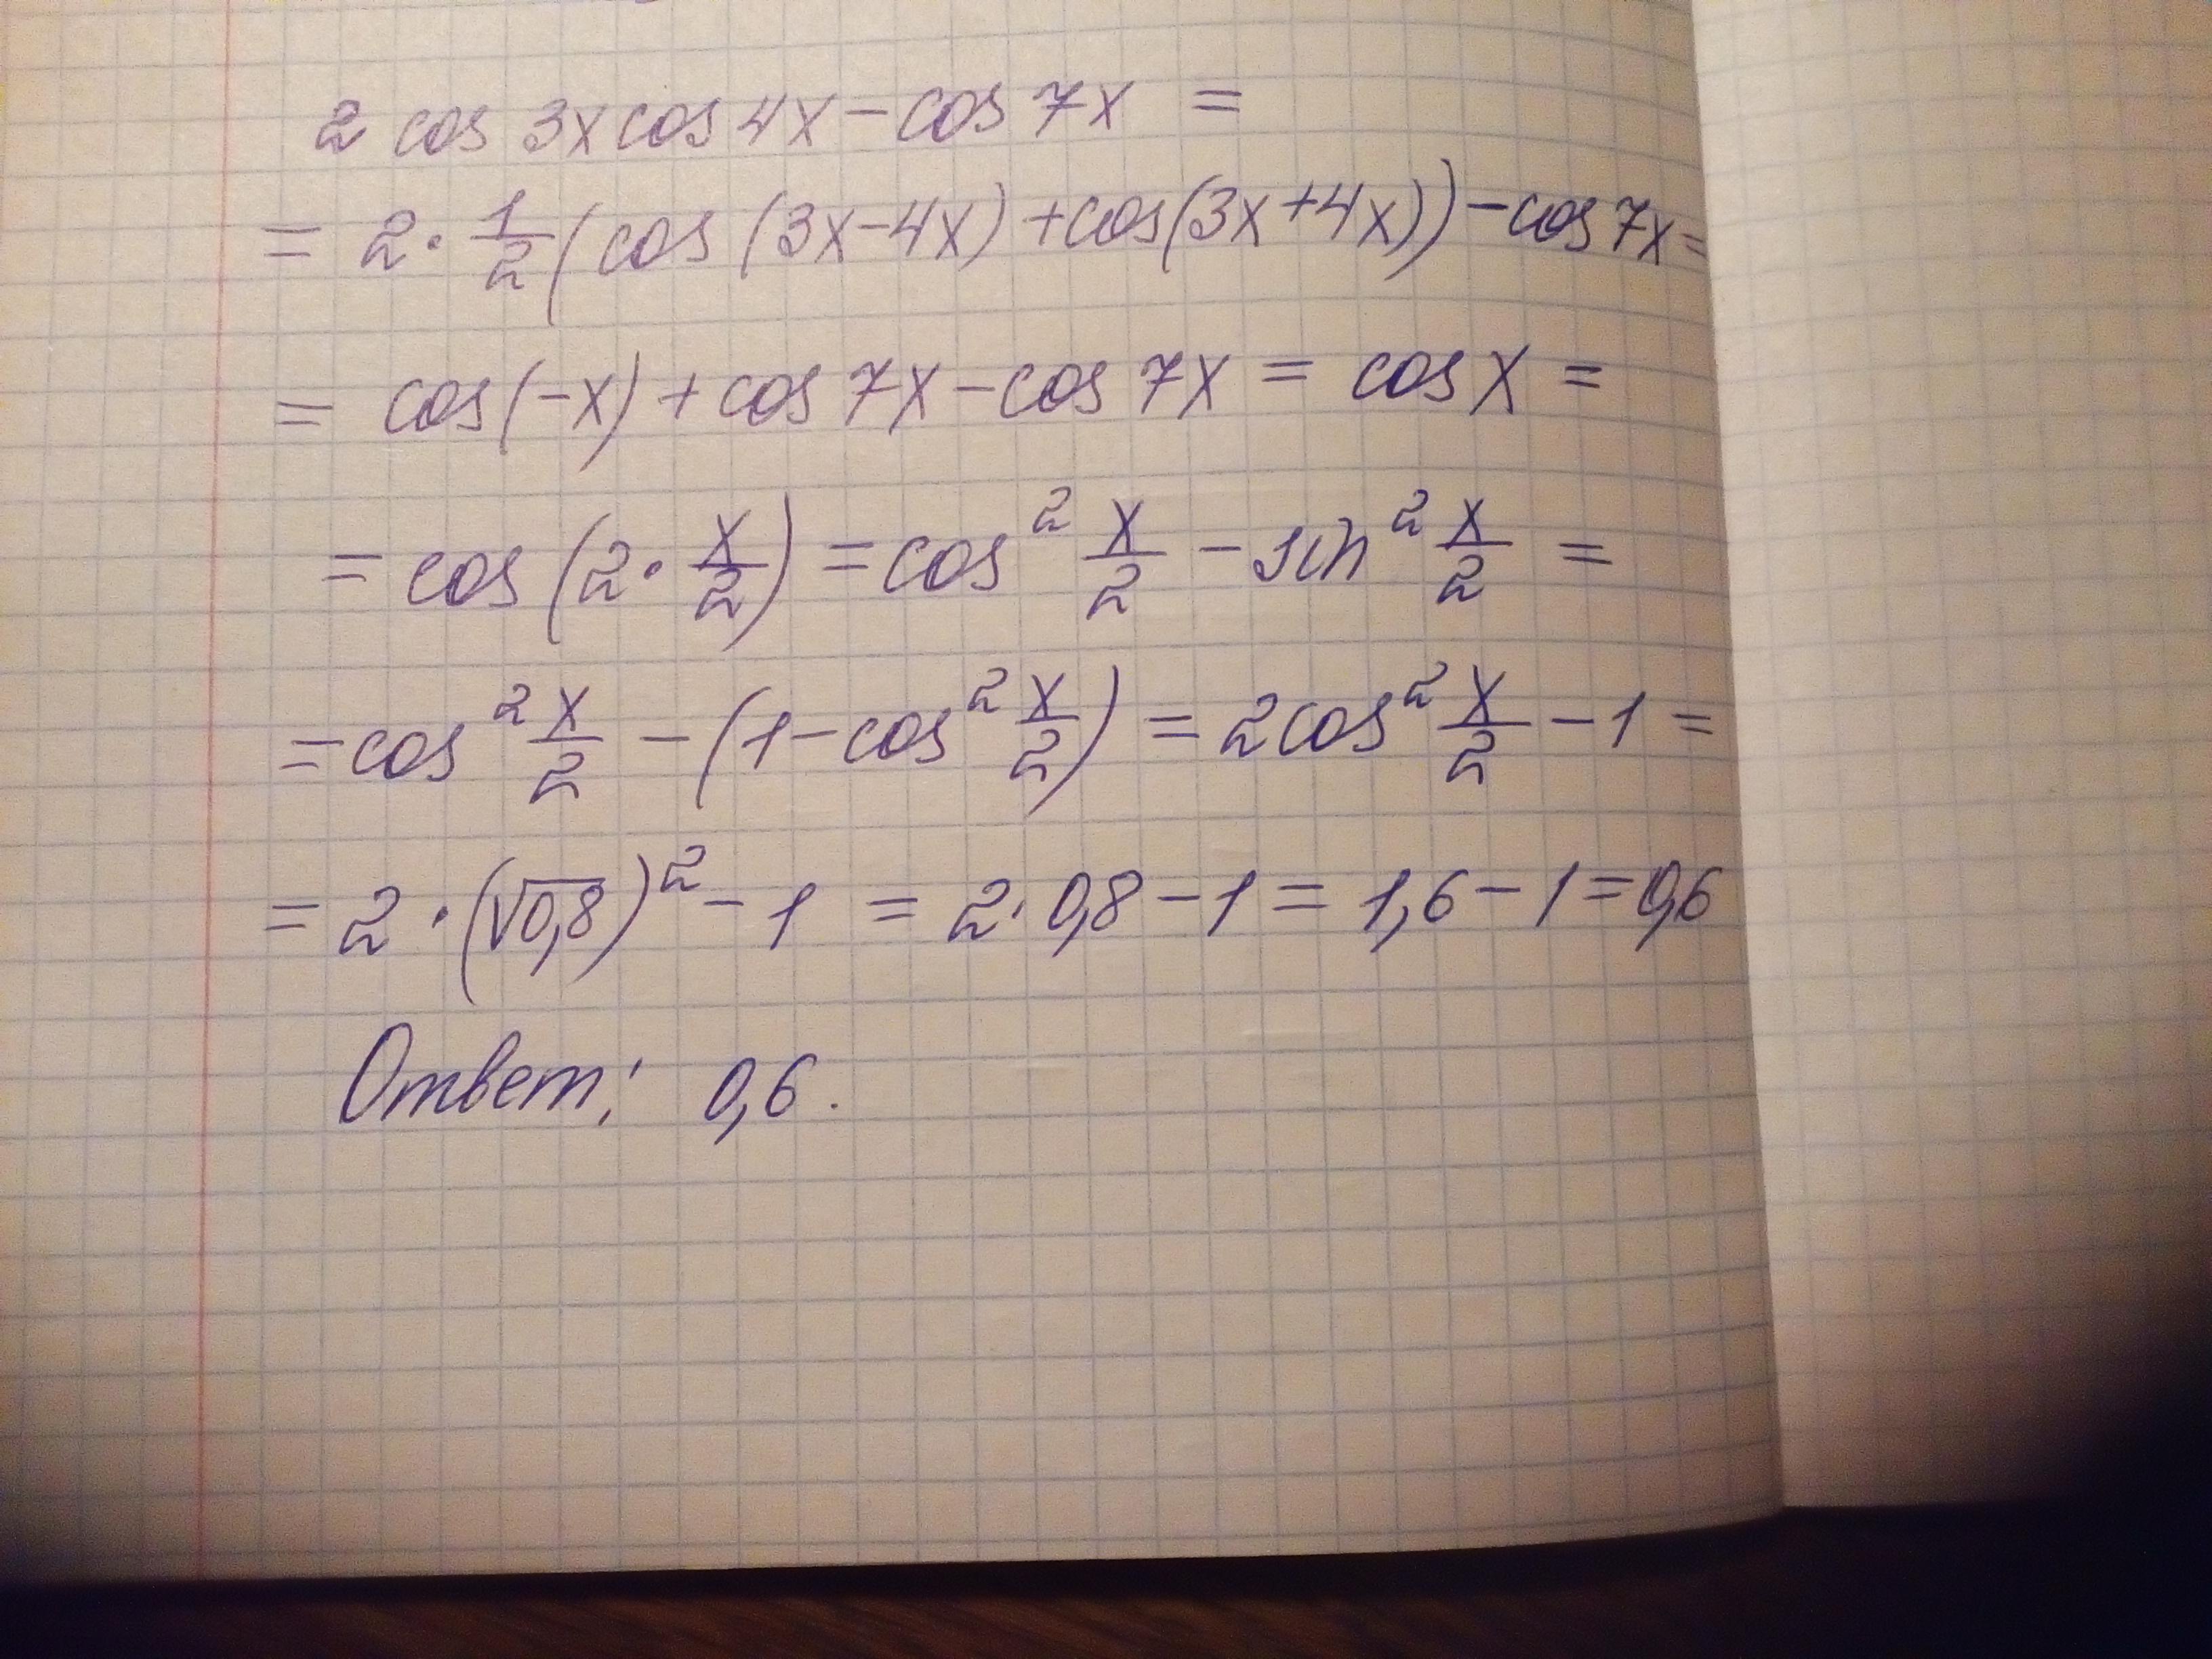 2 cos 3x cos 4x - cos 7x =
= 2 · 1/2 (cos (3x - 4x) + cos (3x + 4x)) - cos 7x =
= cos (-x) + cos 7x - cos 7x = cos x =
= cos (2 · x/2) = cos² x/2 - sin² x/2 =
= cos² x/2 - (1 - cos² x/2) = 2 cos² x/2 - 1 =
= 2 · (√0,8)² - 1 = 2 · 0,8 - 1 = 1,6 - 1 = 0,6
Ответ: 0,6.